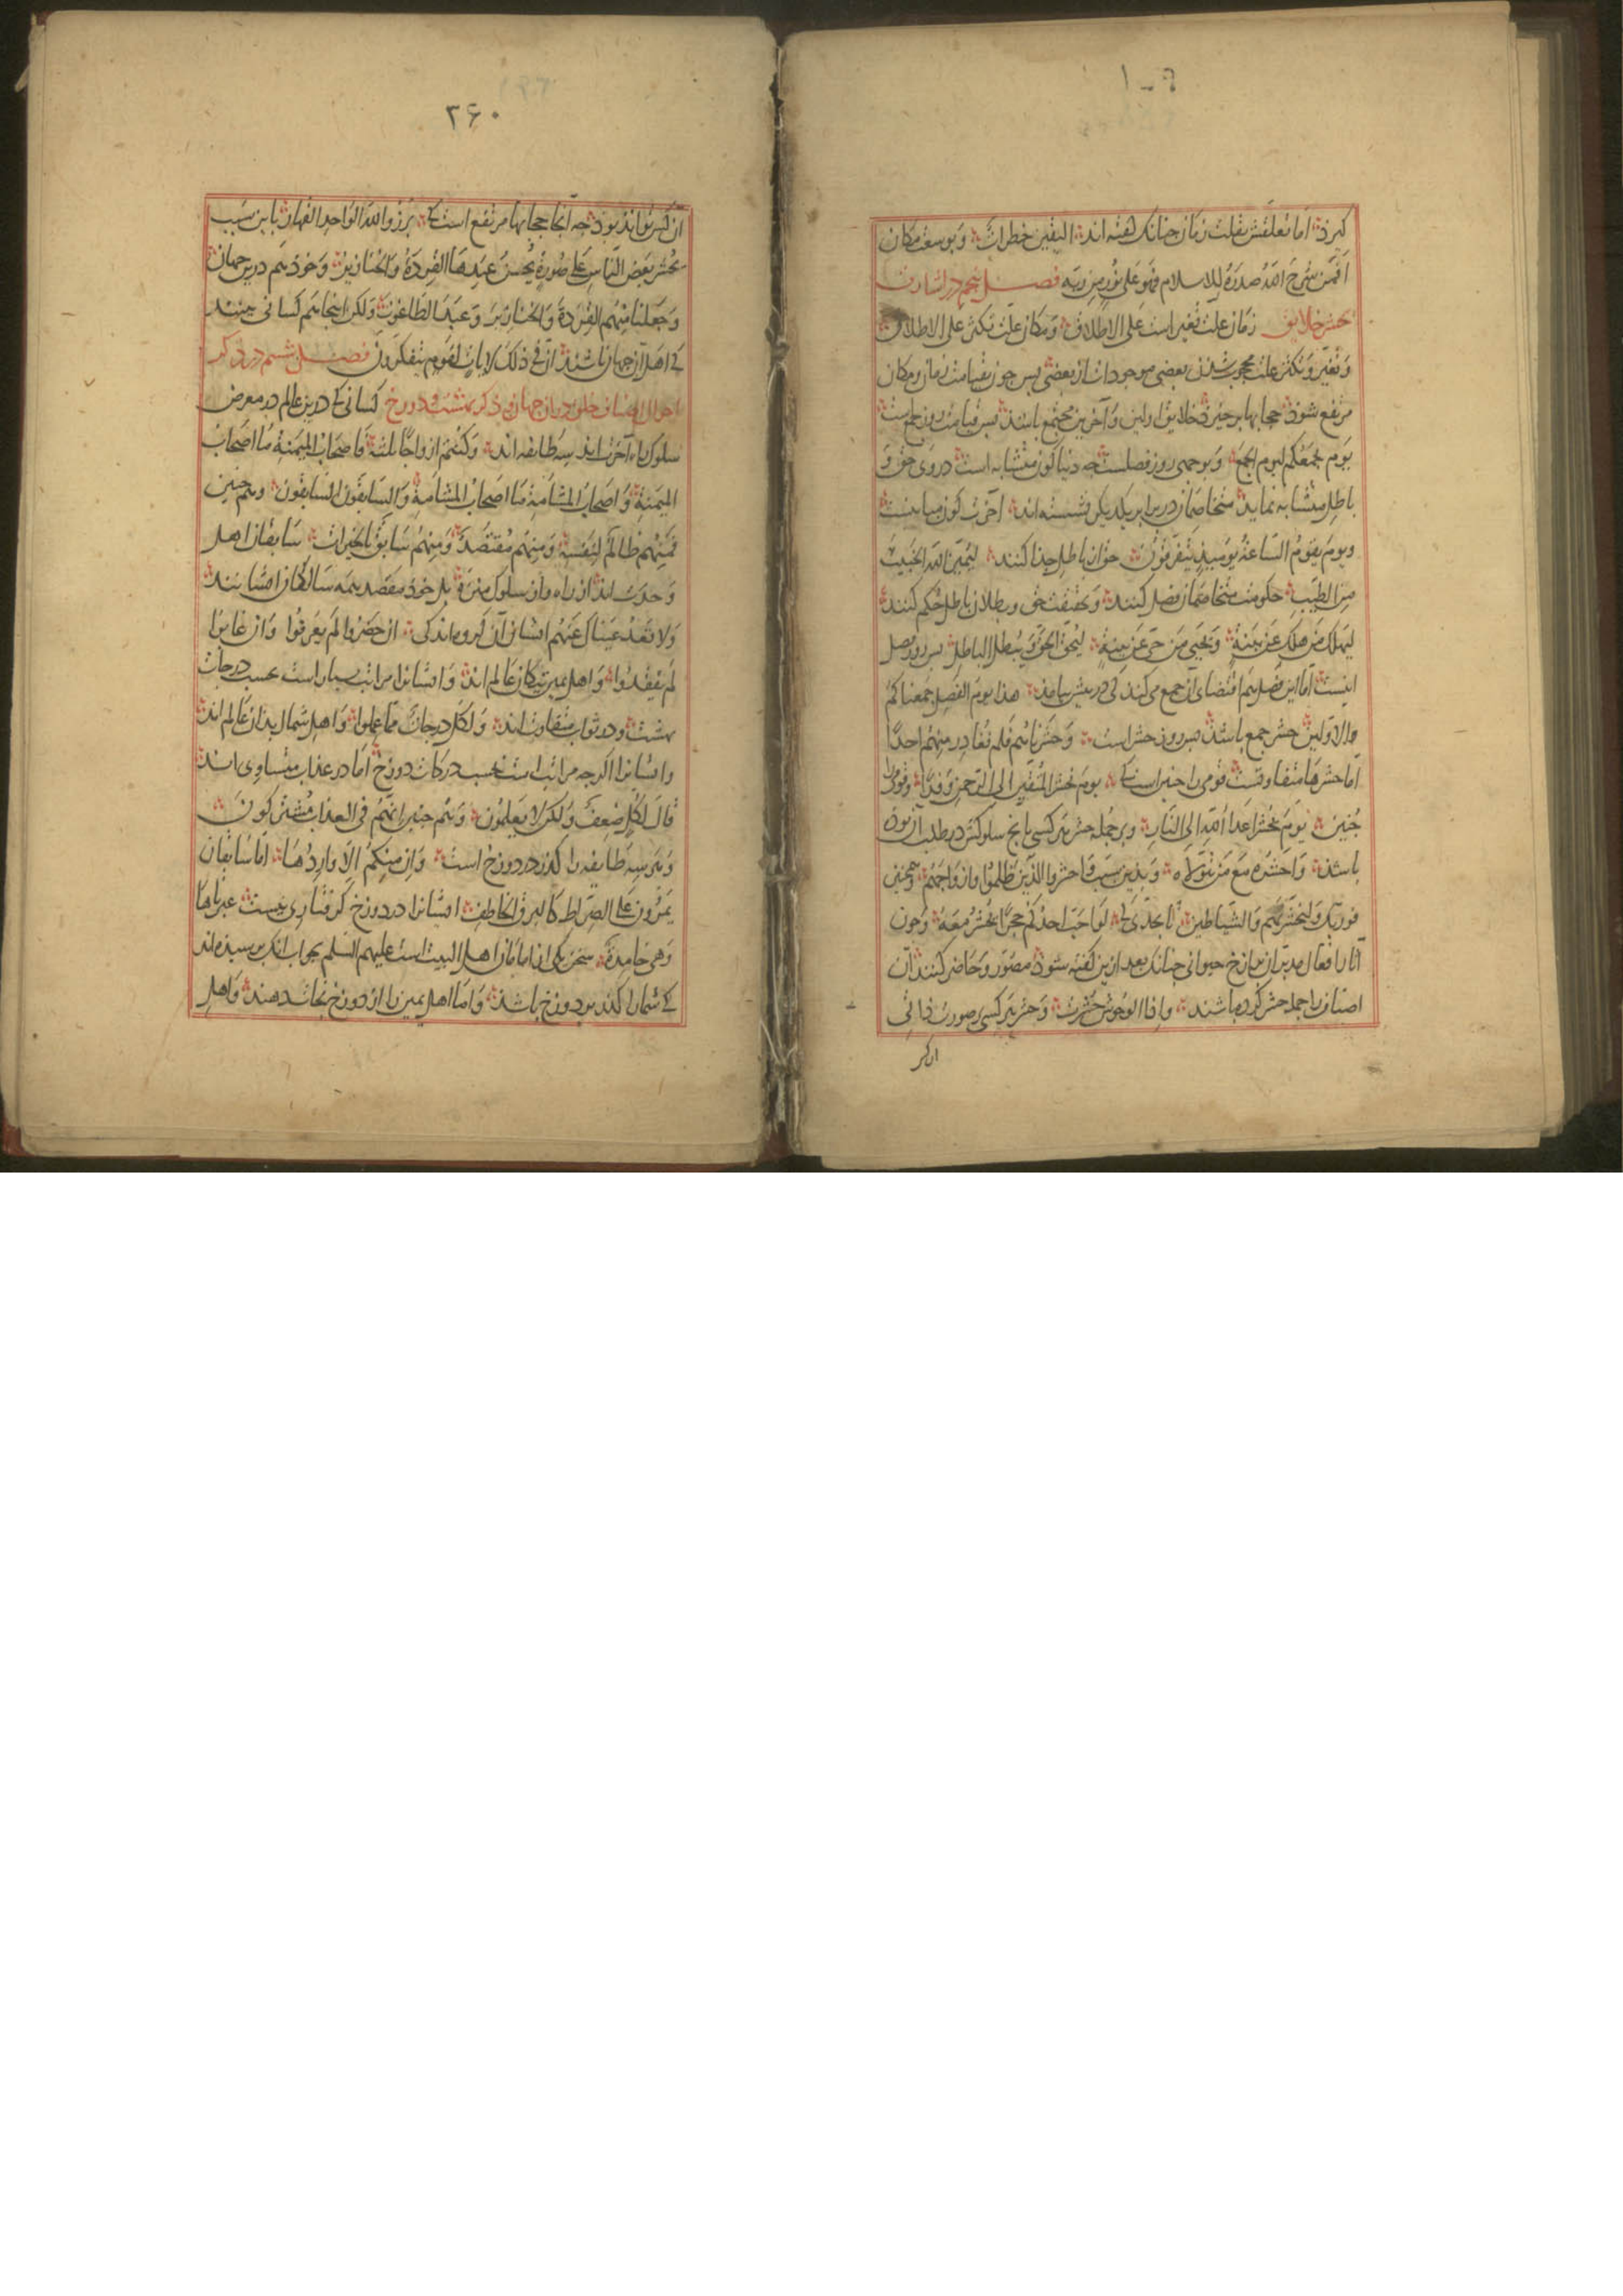 ۱-۶
کیرد اما تعلقش بقلت زمان چنانک گفته اند الیقین خطرات و بوسعت مکان
افمن شرح الله صدره للاسلام فهو علی نور من ربه فصل پنجم در اشارت
حشر خلایق زمان علت تغیر است علی الاطلاق و مکان علت تکثر علی الاطلاق
و تغیر و تکثر علت محجوب شدن بعضی موجودات از بعضی پس چون بقیامت زمان و مکان
مرتفع شوذ حجابها برخیزد خلایق اولین و آخرین مجتمع باشند پس قیامت روز جمع است
یوم یجمعکم لیوم الجمع و بوجهی روز فصلست چه دنیا کون متشابه است در وی حق و
باطل متشابه نماید متخاصمان در برابر یکدیکر نشسته اند آخرت کون مباینست
و یوم یقوم الساعة یومئذ یتفرقون حق از باطل جذا کنند لیمیز الله الخبیث
من الطیب حکومت متخاصمان فصل کنند و بحقیقت حق و بطلان باطل حکم کنند
لیهلک من هلک عن بینة و یحیی من حی عن بینة لیحق الحق و یبطل الباطل پس روز فصل
اینست اما این فصل هم اقتضای آن جمع می کند کی در پیش بیامد هذا یوم الفصل جمعناکم
والاولین حشر جمع باشد پس روز حشر است و حشرناهم فلم نغادر منهم احدا
اما حشرها متفاوتست قومی را چنین است که یوم نحشر المتقین الی الرحمن وفدا و قومی را
چنین یوم یحشر اعدا الله الی النار و بر جمله حشر هر کسی با آنچ سلوکش در طلب آن بوده
باشد و احشره مع من یتولاه و بدین سبب احشروا الذین ظلموا و ازواجهم و همچنین
فوربک لنحشرنهم و الشیاطین تا بحدی که لو احب احدکم حجرا یحشر معه و چون
آثار افعال مدبران برازخ حیوانی چنانک بعد ازین کفته شوذ مصور و حاضر کنند آن
اصناف را جمله حشر کرده باشند و اذا الوحوش حشرت و حشر هر کسی بر صورت ذاتی
ان کر
۳۶۰
آن کس تواند بود چه آنجا حجابها مرتفع است که برزوا لله الواحد القهار باین سبب
یحشر بعض الناس علی صورة یحسن عندها القردة و الخنازیر و خود هم درین جهان
و جعل منهم القردة و الخنازیر و عبد الطاغوت ولکن اینجا هم کسانی بینند
که اهل آن جهان باشند ان فی ذلک لایات لقوم یتفکرون فصل ششم در ذکر
احوال اصناف خلق در آن جهان و ذکر بهشت و دوزخ کسانی که درین عالم در معرض
سلوک راه آخرت اند سه طایفه اند و کنتم ازواجا ثلثة فاصحاب المیمنة ما اصحاب
المیمنة و اصحاب المشامة ما اصحاب المشامة و السابقون السابقون و همچنین
فمنهم ظالم لنفسه و منهم مقتصد و منهم سابق بالخیرات سابقان اهل
وحدت اند از راه و از سلوک منزه بلک خود مقصد همه سالکان ایشانند
و لا تعد عیناک عنهم ایشان آن کروه اند کی ان حضروا لم یعرفوا و ان غابوا
لم یفقدوا و اهل یمین نیکان عالم اند و ایشانرا مراتب بسیار است بحسب درجات
بهشت و در ثواب متفاوت اند و لکل درجات مما عملوا و اهل شمال بدان عالم اند
و ایشانرا اکرچه مراتب است بحسب درکات دوزخ اما در عذاب متساوی اند
قال لکل ضعف ولکن لا یعلمون و همچنین انهم فی العذاب مشترکون
و هر سه طایفه را کذر بر دوزخ است و ان منکم الا واردها اما سابقان
یمرون علی الصراط کالبرق الخاطف ایشانرا در دوزخ کرفتاری نیست عبرناها
و هی خامدة سخن یکی از امامان اهل البیت است علیهم السلم بجواب آنک پرسیده اند
که شما را کذر بر دوزخ باشد و اما اهل یمین را از دوزخ نجات دهند و اهل